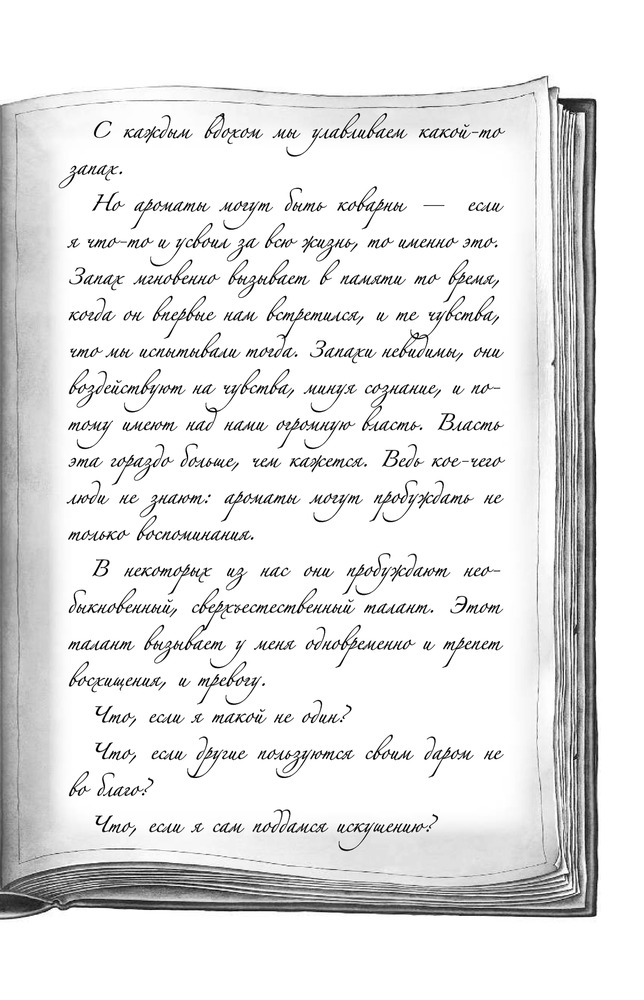 С каждым вдохом мы улавливаем какой-то
запах.
Но ароматы могут быть коварны — если
я что-то и усвоил за всю жизнь, то именно это.
Запах мгновенно вызывает в памяти то время,
когда он впервые нам встретился, и те чувства,
что мы испытывали тогда. Запахи невидимы, они
воздействуют на чувства, минуя сознание, и по-
тому имеют над нами огромную власть. Власть
эта гораздо больше, чем кажется. Ведь кое-чего
люди не знают: ароматы могут пробуждать не
только воспоминания.
В некоторых из нас они пробуждают нео-
быкновенный, сверхъестественный талант. Этот
талант вызывает у меня одновременно и трепет
восхищения, и тревогу.
Что, если я такой не один?
Что, если другие пользуются своим даром не
во благо?
Что, если я сам поддамся искушению?